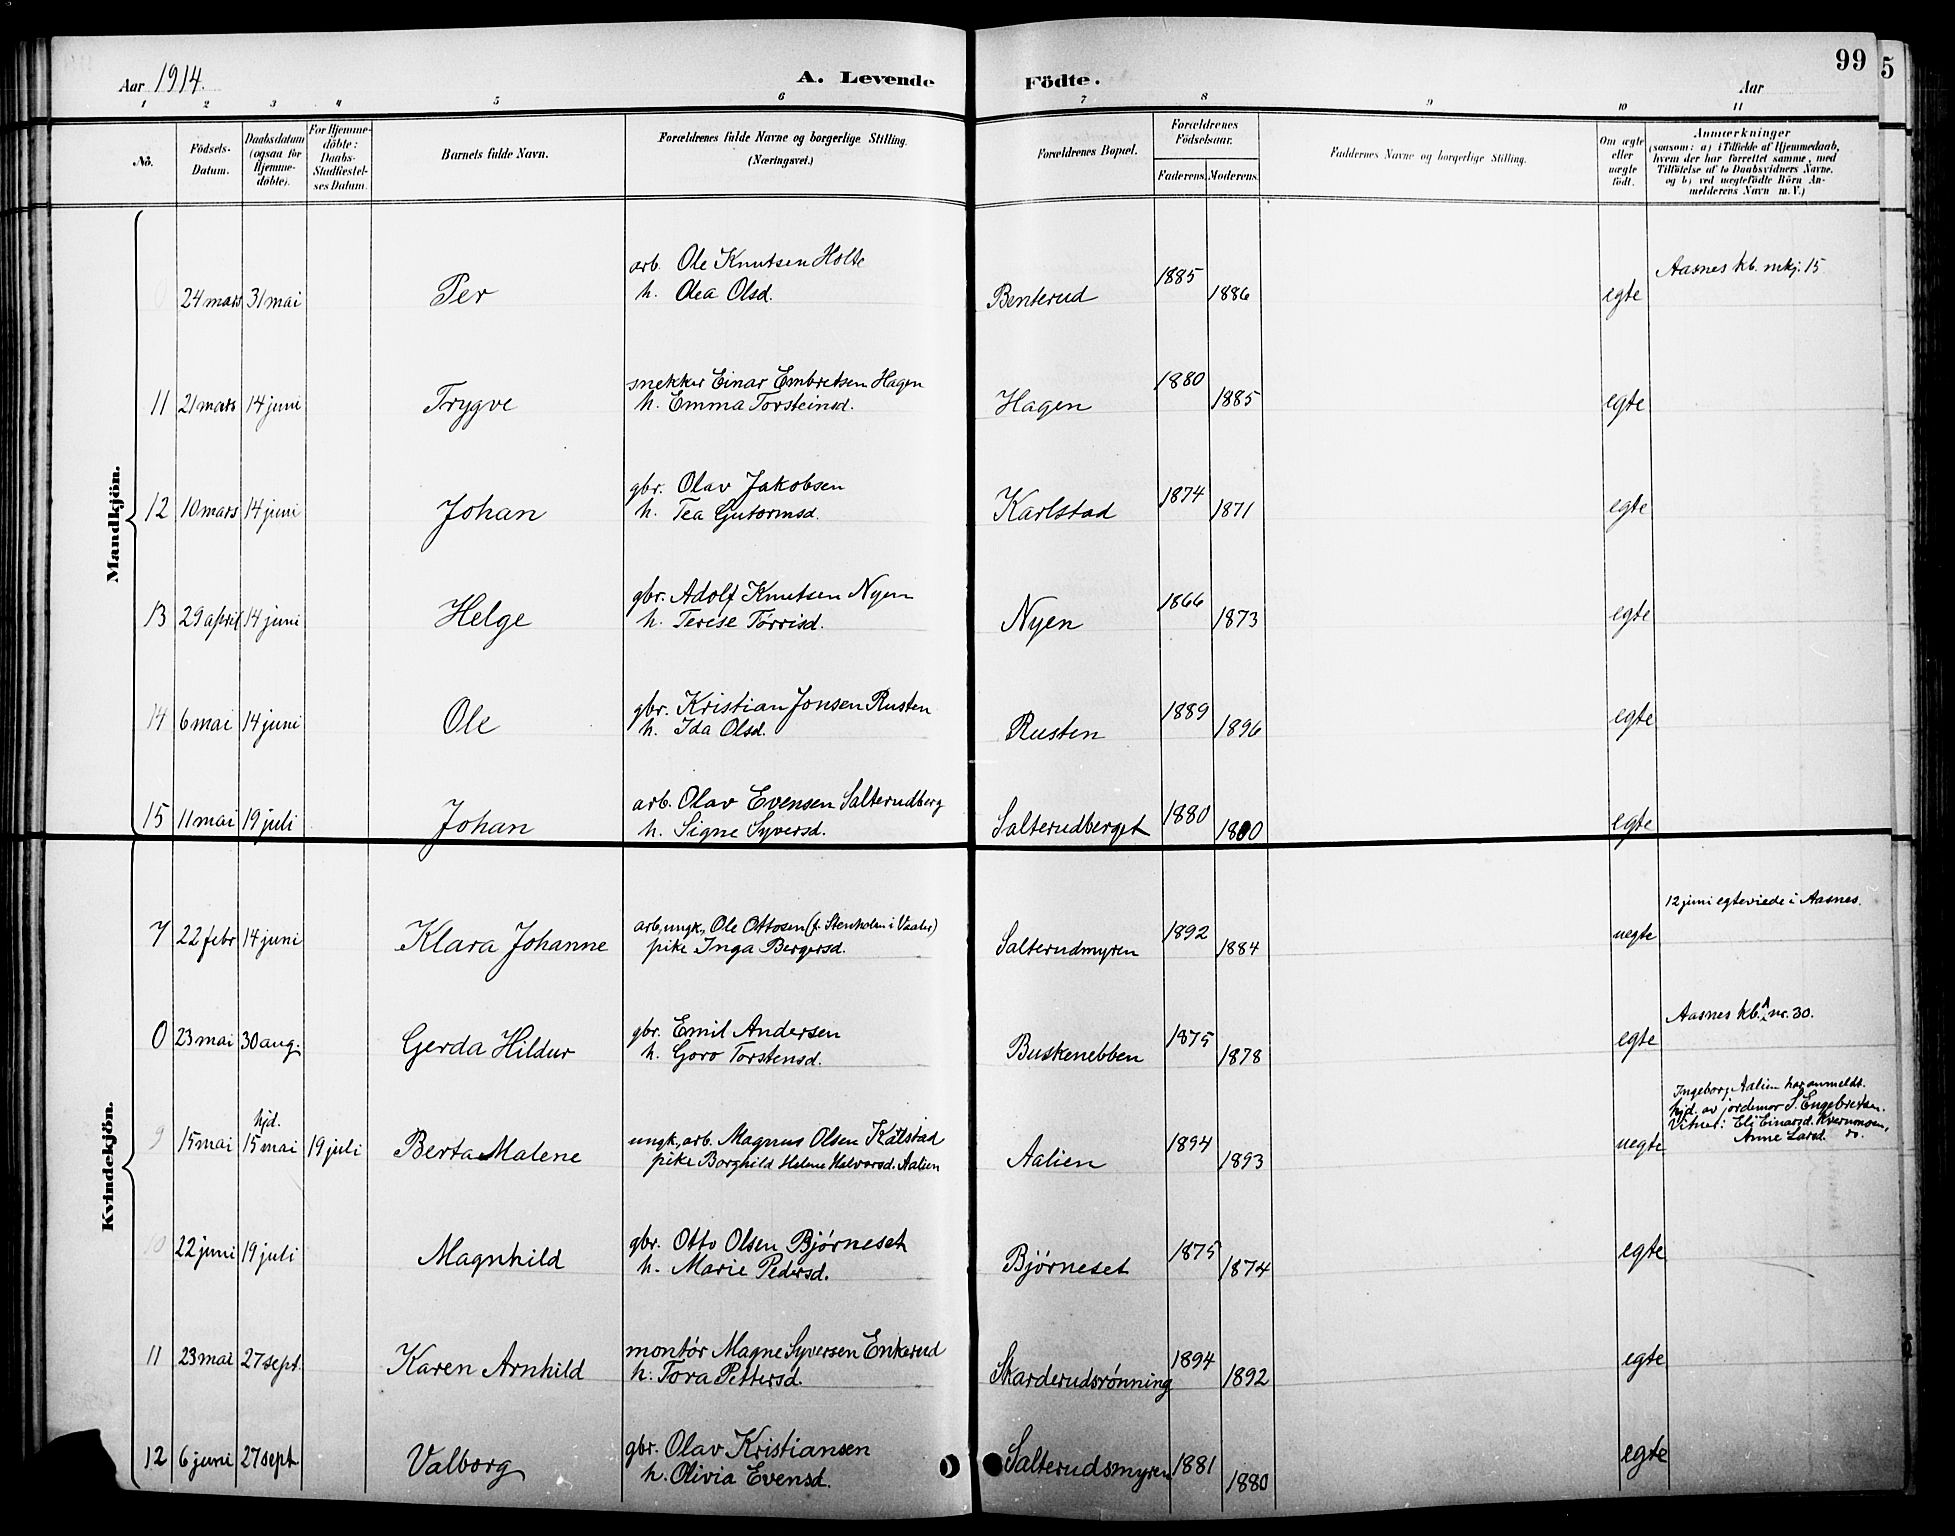 Aar 1914.
A. Levende Födte.
Aar
99
5
1 2 3 4 5 6 7 8 9 10 11
No.
Födsels-Datum.
Daabsdatum (ogsaa for Hjemme-döbte).
For Hjemme-döbte: Daabs-Stadfæstel-ses Datum.
Barnets fulde Navn.
Forældrenes fulde Navne og borgerlige Stilling. (Næringsvei.)
Forældrenes Bopæl.
Forældrenes Födselsaar.
Faderens. Moderens.
Faddernes Navne og borgerlige Stilling.
Om ægte eller uægte födt.
Anmærkninger
(saasom: a) i Tilfælde af Hjemmedaab, hvem der har forrettet samme, med Tilföielse af to Daabsvidners Navne, og b) ved uægtefödte Börn An-melderens Navn m. V.)
Mandkjön.
24 mars 31 mai Per
arb. Ole Knutsen Holte
h. Olea Olsd.
Benterud 1885 1886 egte Aasnes kb. mkj. 15
11 21 mars 14 juni Trygve
snekker Einar Embretsen Hagen
h. Emma Torsteinsd.
Hagen 1880 1885 egte
12 10 mars 14 juni Johan
gbr. Olav Jakobsen
h. Tea Gutormsd.
Karlstad 1874 1871 egte
13 29 april 14 juni Helge
gbr. Adolf Knutsen Nyen
h. Terese Tørrisd.
Nyen 1866 1873 egte
14 6 mai 14 juni Ole
gbr. Kristian Jonsen Rusten
h. Ida Olsd.
Rusten 1889 1896 egte
15 11 mai 19 juli Johan
arb. Olav Evensen Salterudberg
h. Signe Syversd.
Salterudberget 1880 1880 egte
Kvindekjön.
7 22 febr 14 juni Klara Johanne
arb, ungk, Ole Ottosen (f. Stenholen i Vaaler)
pike Inga Bergersd.
Salterudmyren 1892 1884 uegte 12 juni egteviede i Aasnes.
23 mai 30 aug. Gerda Hildur
gbr. Emil Andersen
h. Goro Torstensd.
Buskenebben 1875 1878 egte Aasnes kb. A nr. 30.
9 15 mai hjd. 15 mai 19 juli Berta Malene
ungk, arb. Magnus Olsen Kalstad
pike Borghild Helene Halvorsd. Aalien
Aalien 1894 1893 uegte
Ingeborg Aalien har anmeldt.
hjd. av jordmor S. Engebretsen.
Vitner: Eli Einarsd. Kvernmoen,
Anne Larsd. do.
10 22 juni 19 juli Magnhild
gbr. Otto Olsen Bjørneset
h. Marie Pedersd.
Bjørneset 1875 1874 egte
11 23 mai 27 sept. Karen Arnhild
montør Magne Syversen Enkerud
h. Tora Pettersd.
Skarderudsrønning 1894 1892 egte
12 6 juni 27 sept Valborg
gbr. Olav Kristiansen
h. Olivia Evensd.
Salterudsmyren 1881 1880 egte